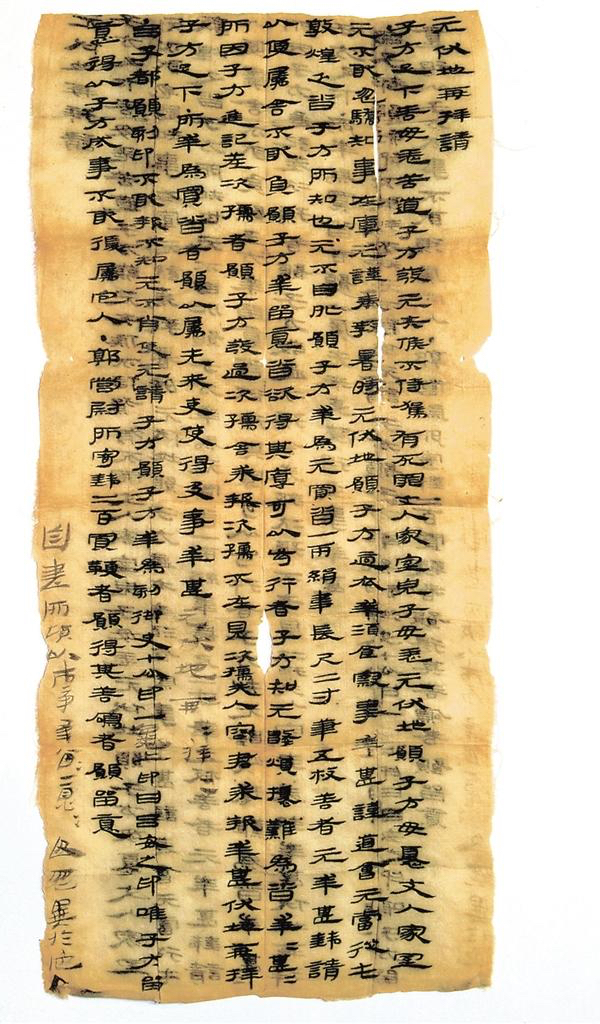 元伏地再拜請
子方足下善毋恙苦道子方發元失候不侍駕有死罪丈人家室兒子毋恙元伏地願子方毋憂丈人家室
元不敢忽驕知事在庫元謹奉教暑時元伏地願子方適衣幸酒食察事幸甚謹道會元當從屯
敦煌乏沓子方所知也元不自外願子方幸為元買沓一兩絹韋長尺二寸筆五枚善者元幸甚錢請
以便屬舍不敢負願子方幸留意沓欲得其厚可以步行者子方知元數煩擾難為沓幸=甚=
所因子方進記差次孺者願子方發過次孺舍求報次孺不在見次孺夫人容君求報幸甚伏地再拜
子方足下·所幸為買沓者願以屬先來吏使得及事幸甚元伏地再=拜=
呂子都願刻印不敢報不知元不肖使元請子方願子方幸為刻御史七分印一龜上印曰呂安之印唯子方留
意得以子方成事不敢復屬它人·郭營尉所寄錢二百買鞭者願得其善鳴者願留意
自書所願以市事幸留=意=毋忽異於它人